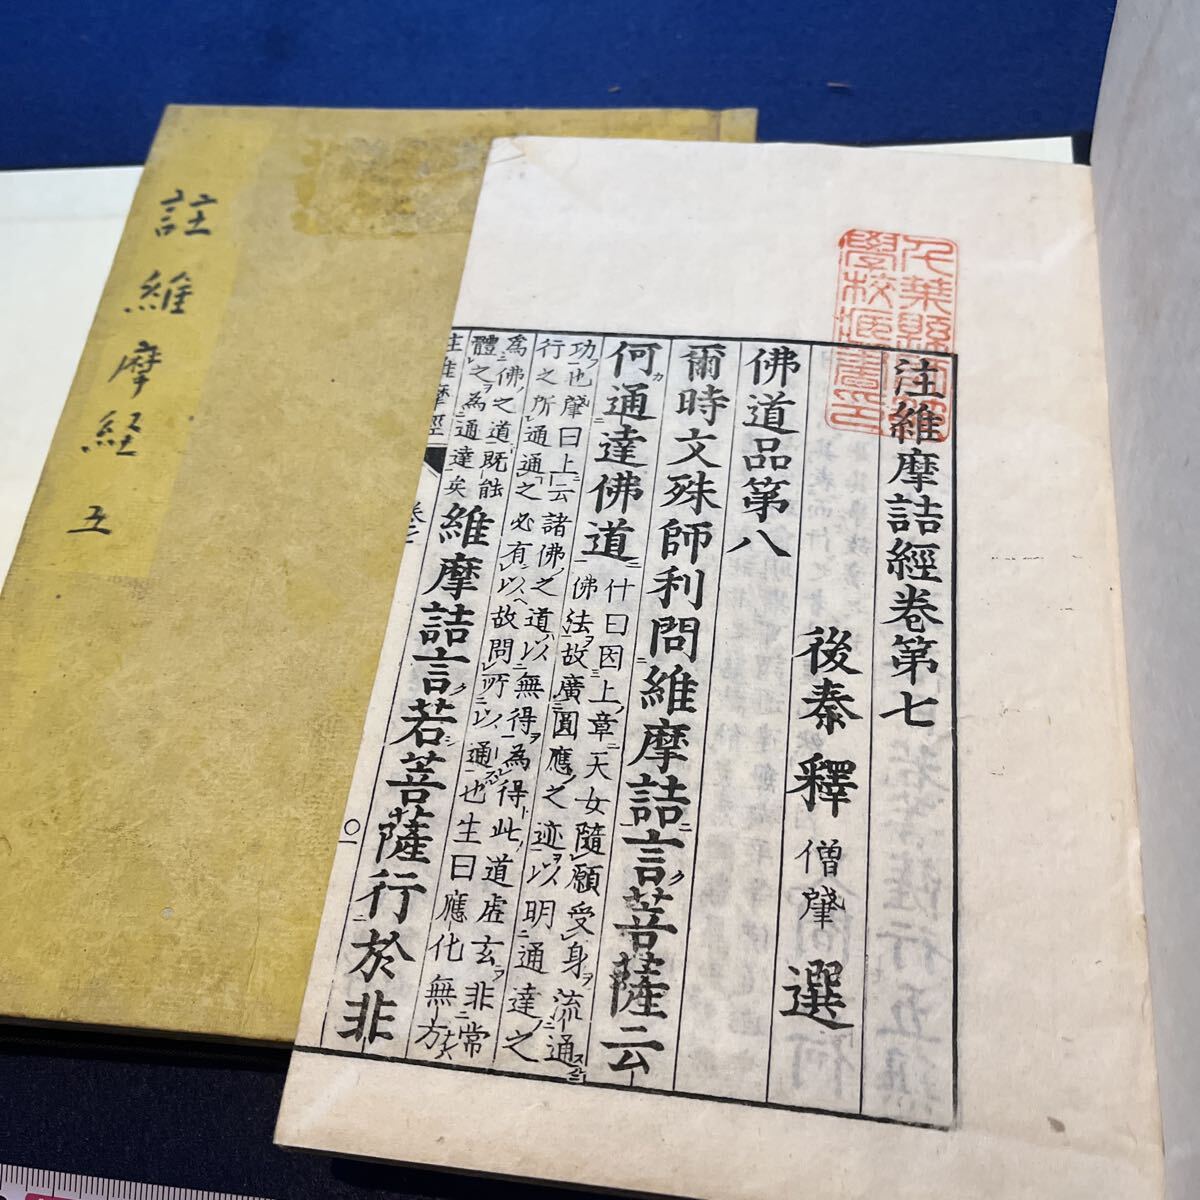 註維摩経 五
注維摩詰經卷第七
後秦釋僧肇選
佛道品第八
爾時文殊師利問維摩詰言菩薩云
何通達佛道
什曰因上章天女隨願受身流通
佛法故廣圓應之迹以明通達之
功也肇曰上云諸佛之道以無得為得此道虛玄非常
行之所通通之必有以故問所以通也生曰應化無方
為佛之道既能
體之為通達矣
維摩詰言若菩薩行於非
注維摩經
卷七
〇一